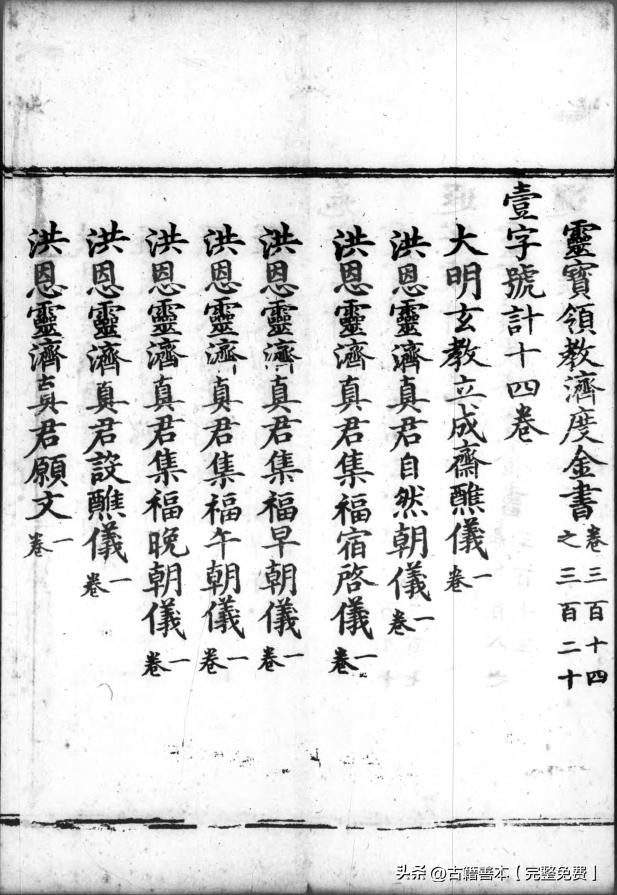 靈寶領教濟度金書卷三百十四之三百二十
壹字號計十四卷
大明玄教立成齋醮儀一卷
洪恩靈濟真君自然朝儀一卷
洪恩靈濟真君集福宿啓儀一卷
洪恩靈濟真君集福早朝儀一卷
洪恩靈濟真君集福午朝儀一卷
洪恩靈濟真君集福晚朝儀一卷
洪恩靈濟真君設醮儀一卷
洪恩靈濟真君願文一卷
头条 @古籍善本【完整免费】